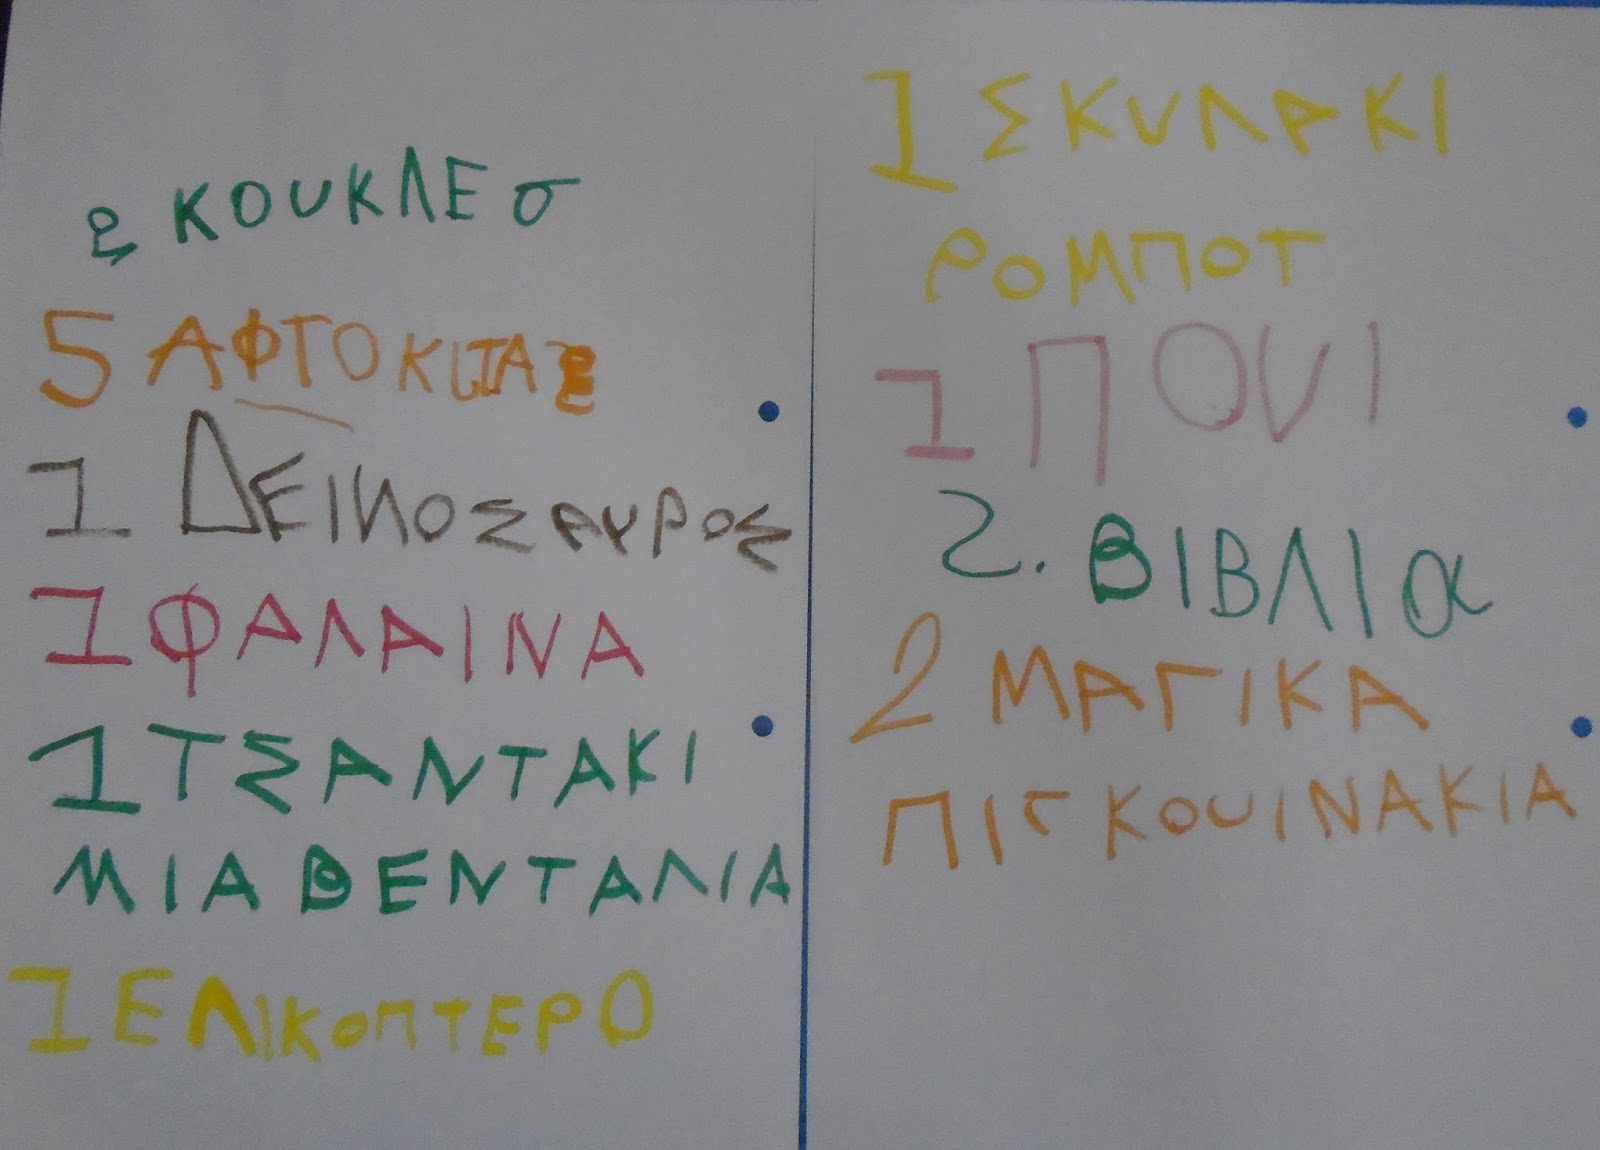 2 ΚΟΥΚΛΕσ
5 ΑΦΤΟΚΙΤΑ2
1 ΔΕΙΝΟΣΑΥΡΟΣ
1 ΦΑΛΑΙΝΑ
1 ΤΣΑΝΤΑΚΙ
ΜΙΑ ΒΕΝΤΑΛΙΑ
1 ΕΛΙΚΟΠΤΕΡΟ
1 ΣΚΥΛΑΚΙ
ΡΟΜΠΟΤ
1 ΠΟΝΙ
2. ΒΙΒΛΙα
2 ΜΑΓΙΚΑ
ΠΙΓΚΟΥΙΝΑΚΙΑ